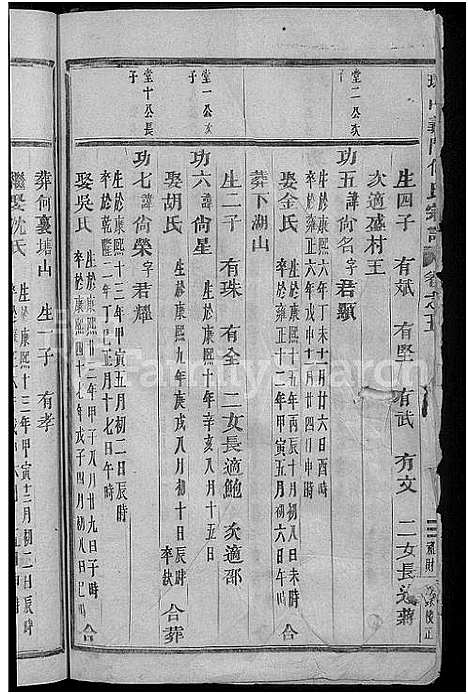 生四子 有斌 有堅 有武 有文 二女長適蔣
次適盛村王
堂二公次子
功五諱尙名字君顯
生於康熙六年丁未十一月廿六日酉時
娶金氏
生於康熙十五年丙辰十月初八日未時
卒於雍正十二年甲寅五月初六日午時
葬下湖山
堂一公次子
功六諱尙星
生於康熙十年辛亥八月十四日寅時
娶胡氏
生於康熙九年庚戌八月初十日辰時
卒缺
合葬
生二子 有珠 有全 二女長適鮑 次適邵
堂十公長子
功七諱尙榮字君耀
生於康熙十三年甲寅五月初二日辰時
卒於乾隆二年丁巳正月十七日午時
娶吳氏
生於康熙廿三年甲子八月廿九日子時
卒於康熙四十七年戊子四月初八日巳時
合
葬何裏塘山 生一子 有孝
繼娶沈氏
生於康熙十三年甲寅十二月初二日辰時
FamilySearch